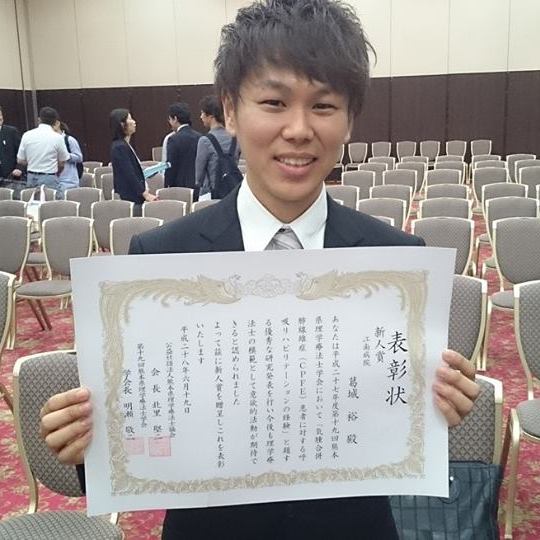 表彰状
新人賞
江南病院
葛城 裕 殿
あなたは平成二十七年度第十九回熊本
県理学療法士学会において「気腫合併
肺線維症（CPFE）患者に対する呼
吸リハビリテーションの経験」と題す
る優秀な研究発表を行い今後も理学療
法士の模範として意欲的活動が期待で
きると認められました
よって茲に新人賞を贈呈しこれを表彰
いたします
平成二十八年六月十九日
公益社団法人熊本県理学療法士協会
会長 北里 堅二
第十九回熊本県理学療法士学会
学会長 明瀬 敬二